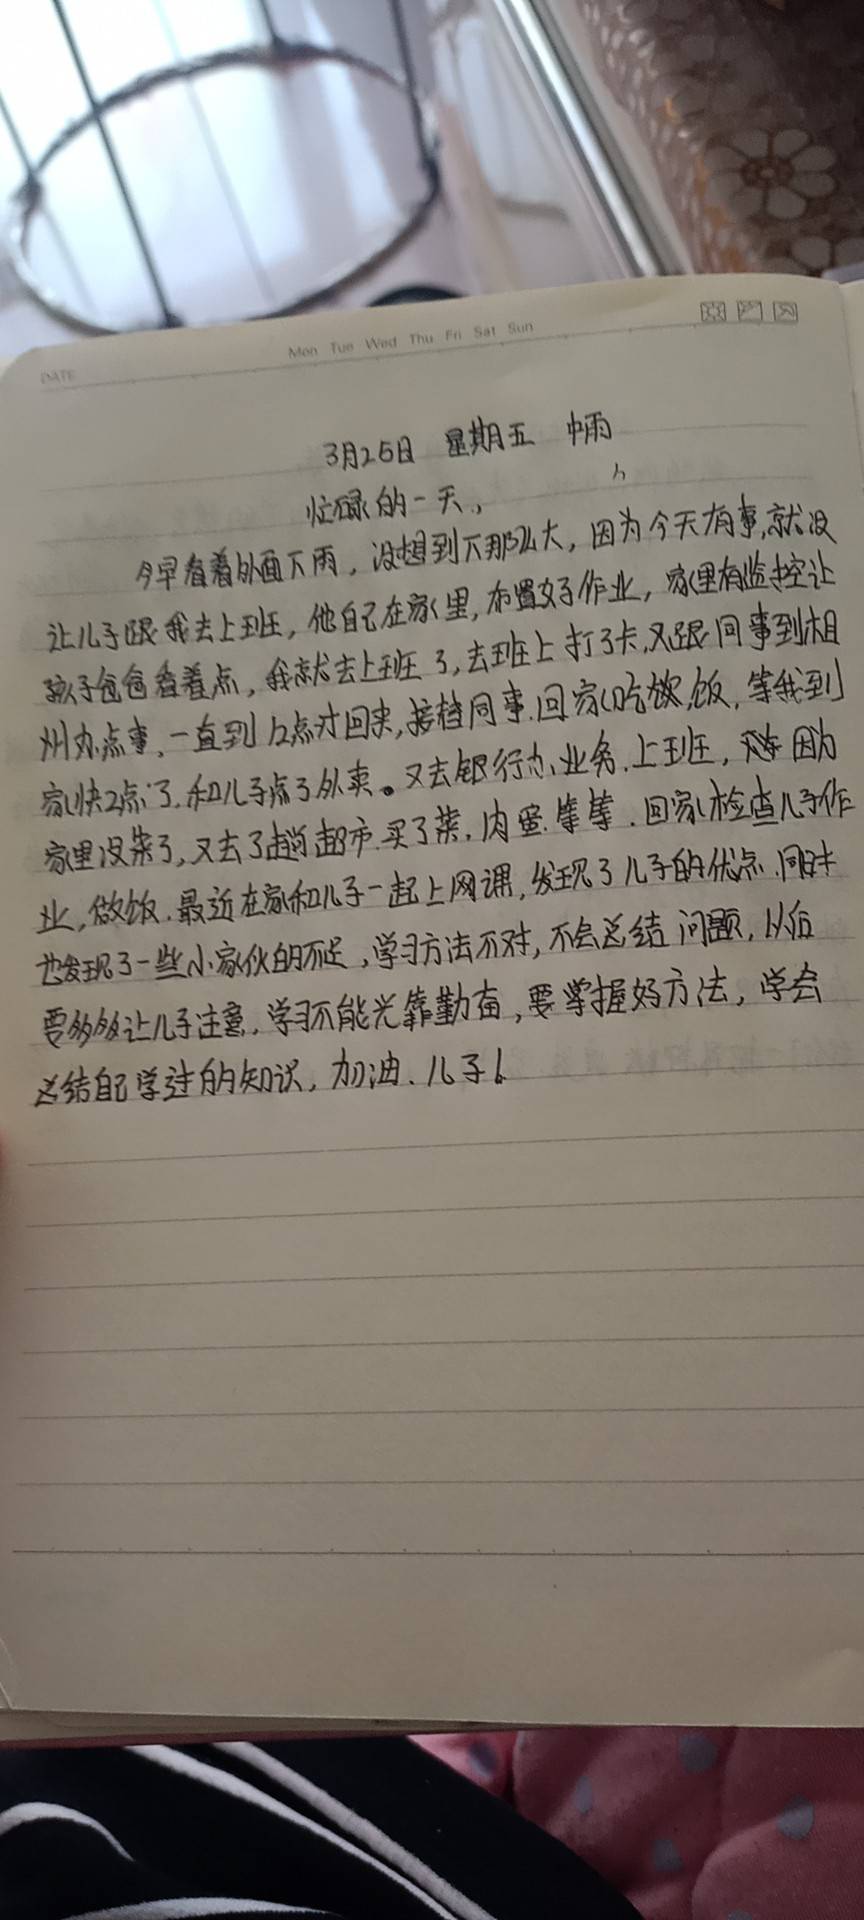 DATE
Mon Tue Wed Thu Fri Sat Sun
3月25日 星期五 中雨
忙碌的一天,
今早看着外面下雨,没想到下那么大,因为今天有事,就没
让儿子跟我去上班,他自己在家里,布置好作业,家里有监控让
孩子爸爸看着点,我就去上班了,去班上打了卡,又跟同事到相
州办点事,一直到12点才回来,接替同事.回家吃饭,等我到
家快2点了.和儿子点了外卖。又去银行办业务.上班,因为
家里没菜了,又去了趟超市.买了菜.肉蛋.等等.回家检查儿子作
业,做饭.最近在家和儿子一起上网课,发现了儿子的优点.同时
也发现了一些小家伙的不足,学习方法不对,不会总结问题,以后
要多多让儿子注意.学习不能光靠勤奋,要掌握好方法,学会
总结自己学过的知识,加油.儿子!